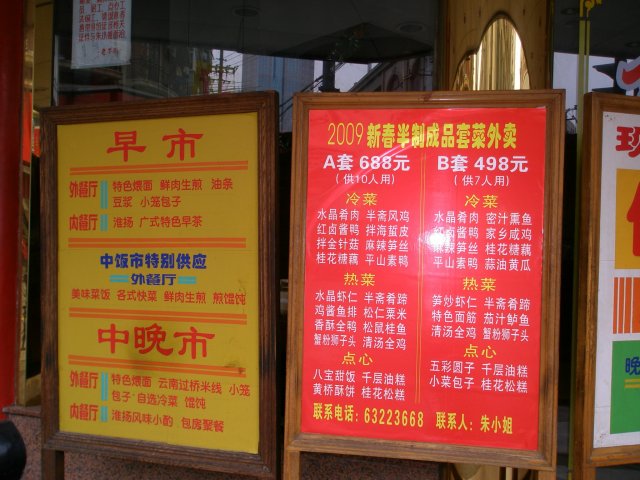 早市
外餐厅 特色煨面 鲜肉生煎 油条
豆浆 小笼包子
内餐厅 淮扬 广式特色早茶
中饭市特别供应
外餐厅
美味菜饭 各式快菜 鲜肉生煎 煎馄饨
中晚市
外餐厅 特色煨面 云南过桥米线 小笼
包子 自选冷菜 馄饨
内餐厅 淮扬风味小酌 包房聚餐
2009新春半制成品套菜外卖
A套 688元 B套 498元
(供10人用) (供7人用)
冷菜 冷菜
水晶肴肉 半斋风鸡 水晶肴肉 密汁熏鱼
红卤酱鸭 拌海蜇皮 红卤酱鸭 家乡咸鸡
拌金针菇 麻辣笋丝 麻辣笋丝 桂花糖藕
桂花糖藕 平山素鸭 平山素鸭 蒜油黄瓜
热菜 热菜
水晶虾仁 半斋肴蹄 笋炒虾仁 半斋肴蹄
鸡酱鱼排 松仁粟米 特色面筋 茄汁鲈鱼
香酥全鸭 松鼠桂鱼 清汤全鸡 蟹粉狮子头
蟹粉狮子头 清汤全鸡
点心 点心
八宝甜饭 千层油糕 五彩圆子 千层油糕
黄桥酥饼 桂花松糕 小菜包子 桂花松糕
联系电话：63223668 联系人：朱小姐